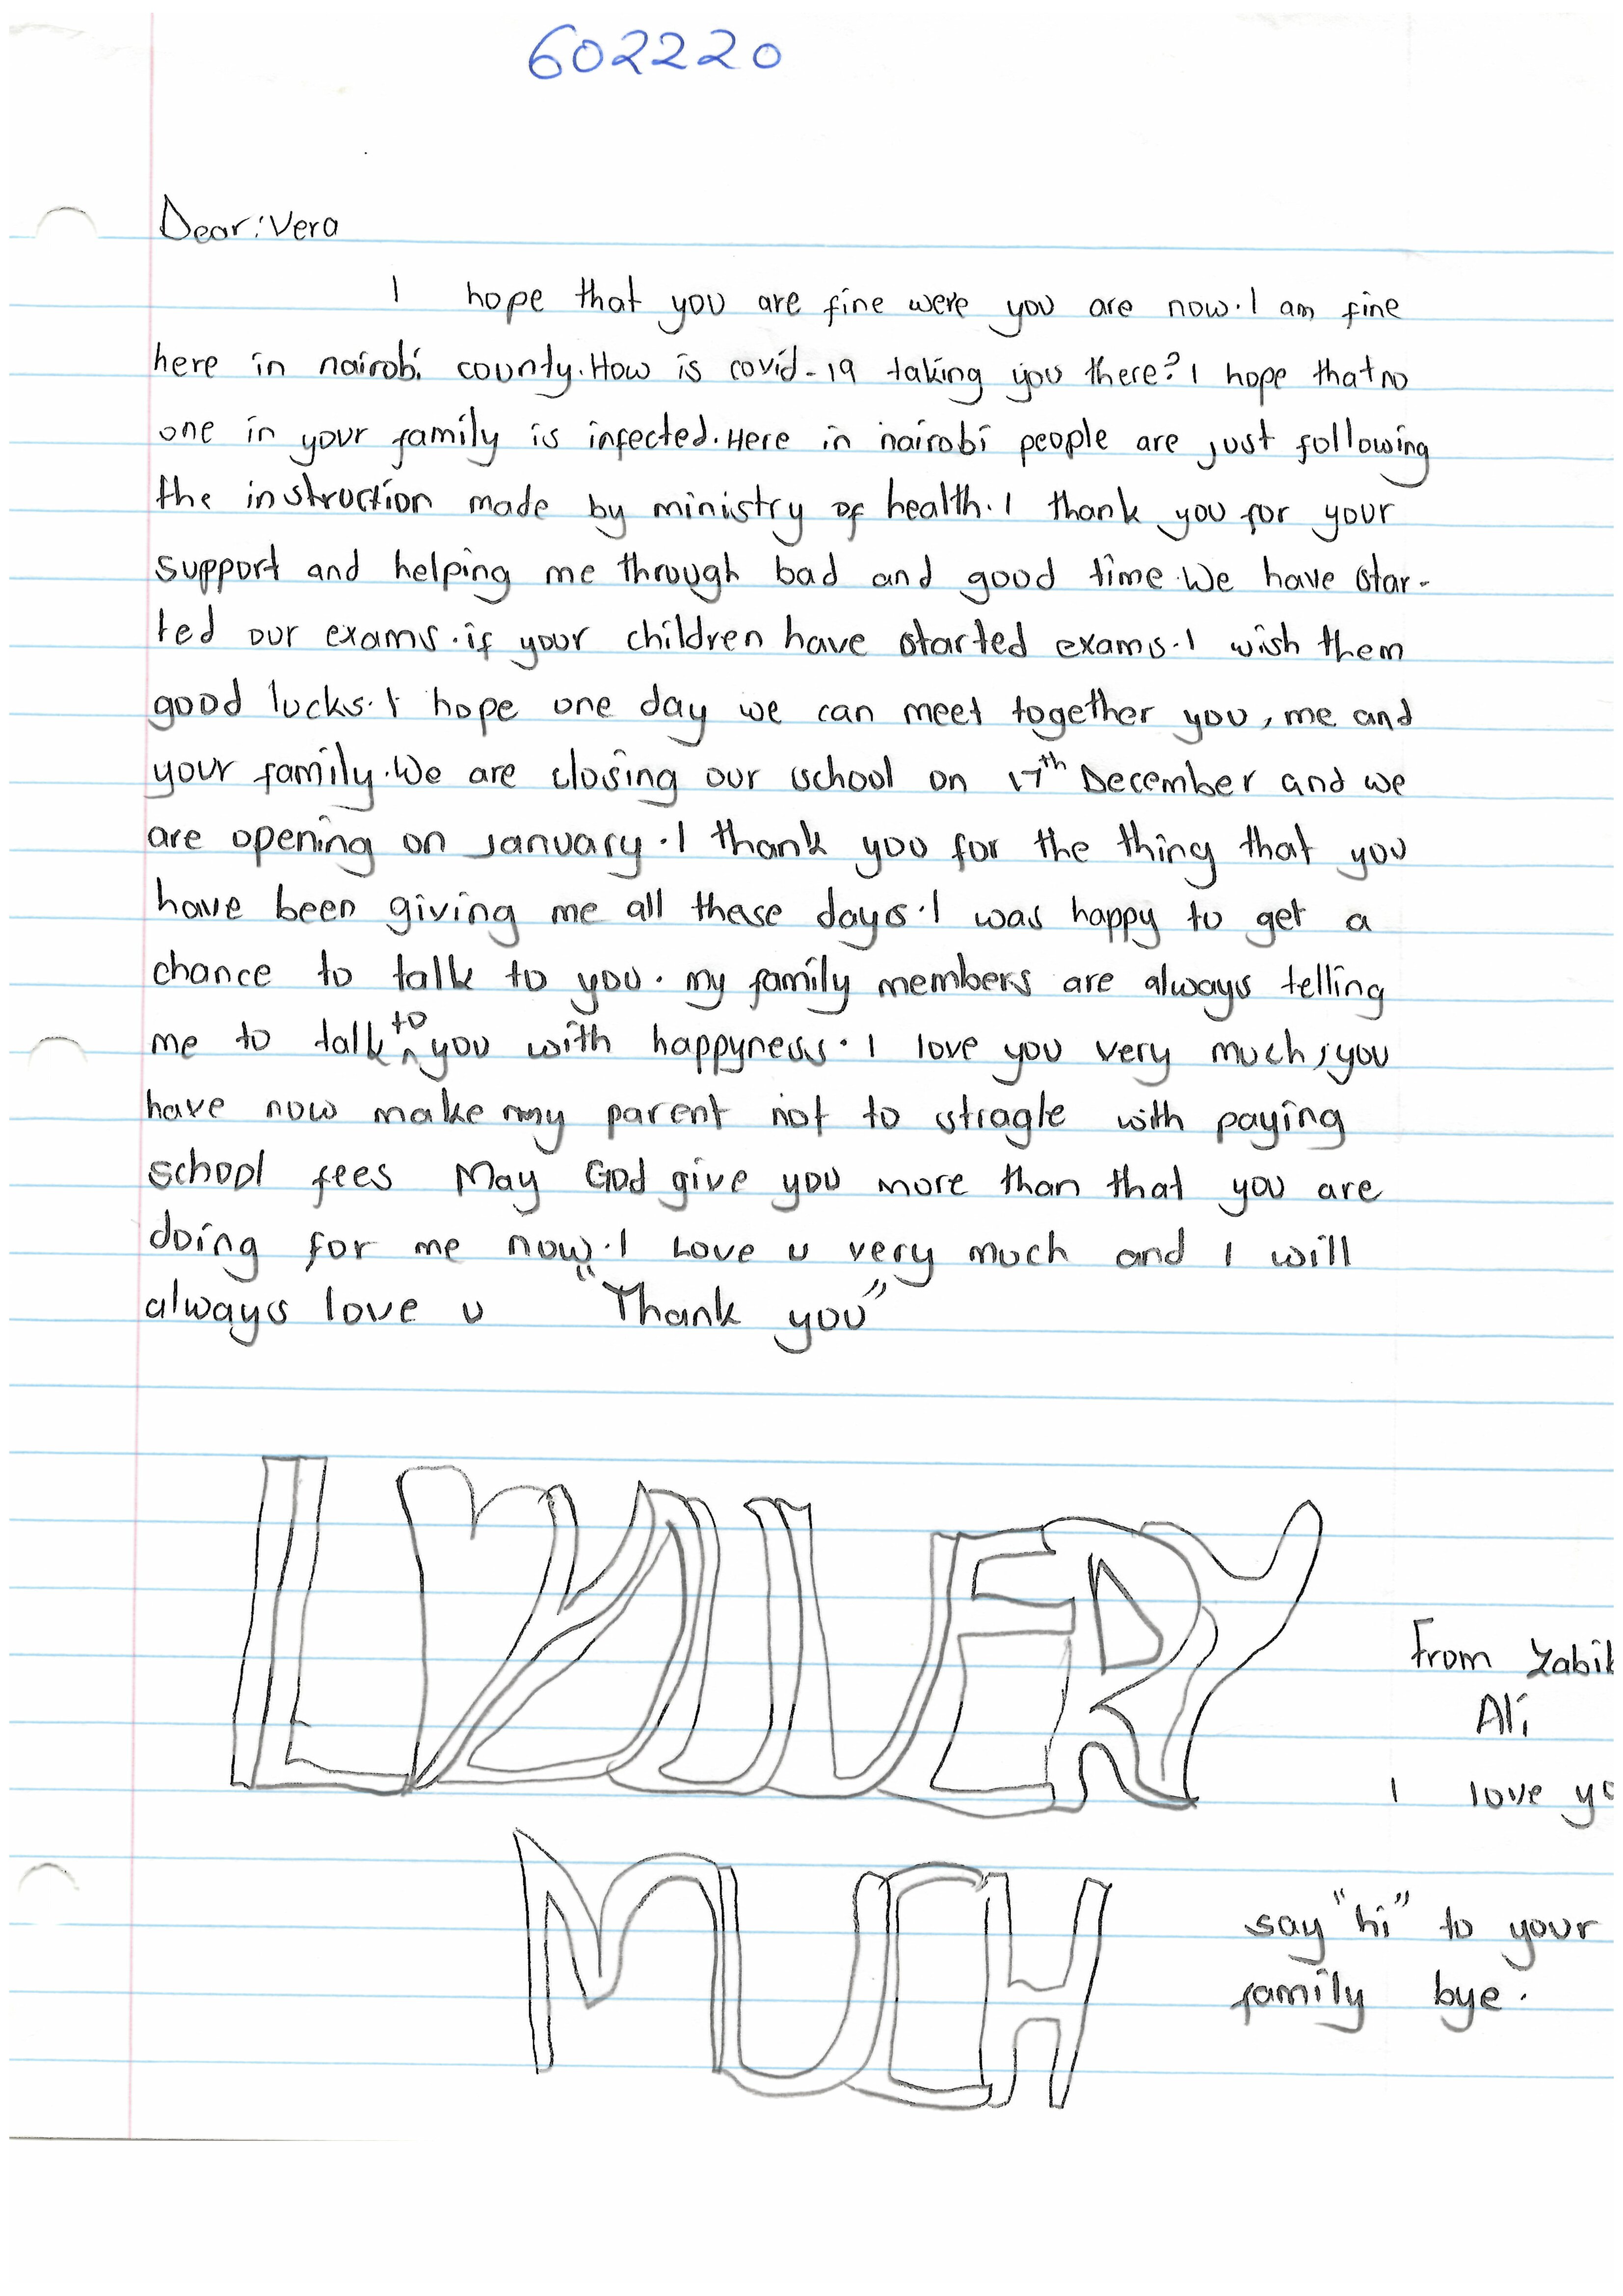 602220
Dear: Vera
I hope that you are fine were you are now. I am fine
here in nairobi county. How is covid-19 taking you there? I hope that no
one in your family is infected. Here in nairobi people are just following
the instruction made by ministry of health. I thank you for your
support and helping me through bad and good time. We have star-
ted our exams. if your children have started exams. I wish them
good lucks. I hope one day we can meet together you, me and
your family. We are closing our school on 17th December and we
are opening on January. I thank you for the thing that you
have been giving me all these days. I was happy to get a
chance to talk to you. my family members are always telling
me to talk to you with happyness. I love you very much, you
have now make my parent not to stragle with paying
school fees May God give you more than that you are
doing for me now. I Love u very much and I will
always love u "Thank you"
VERY
MUCH
From
Ali
I love
say "hi" to your
family bye.